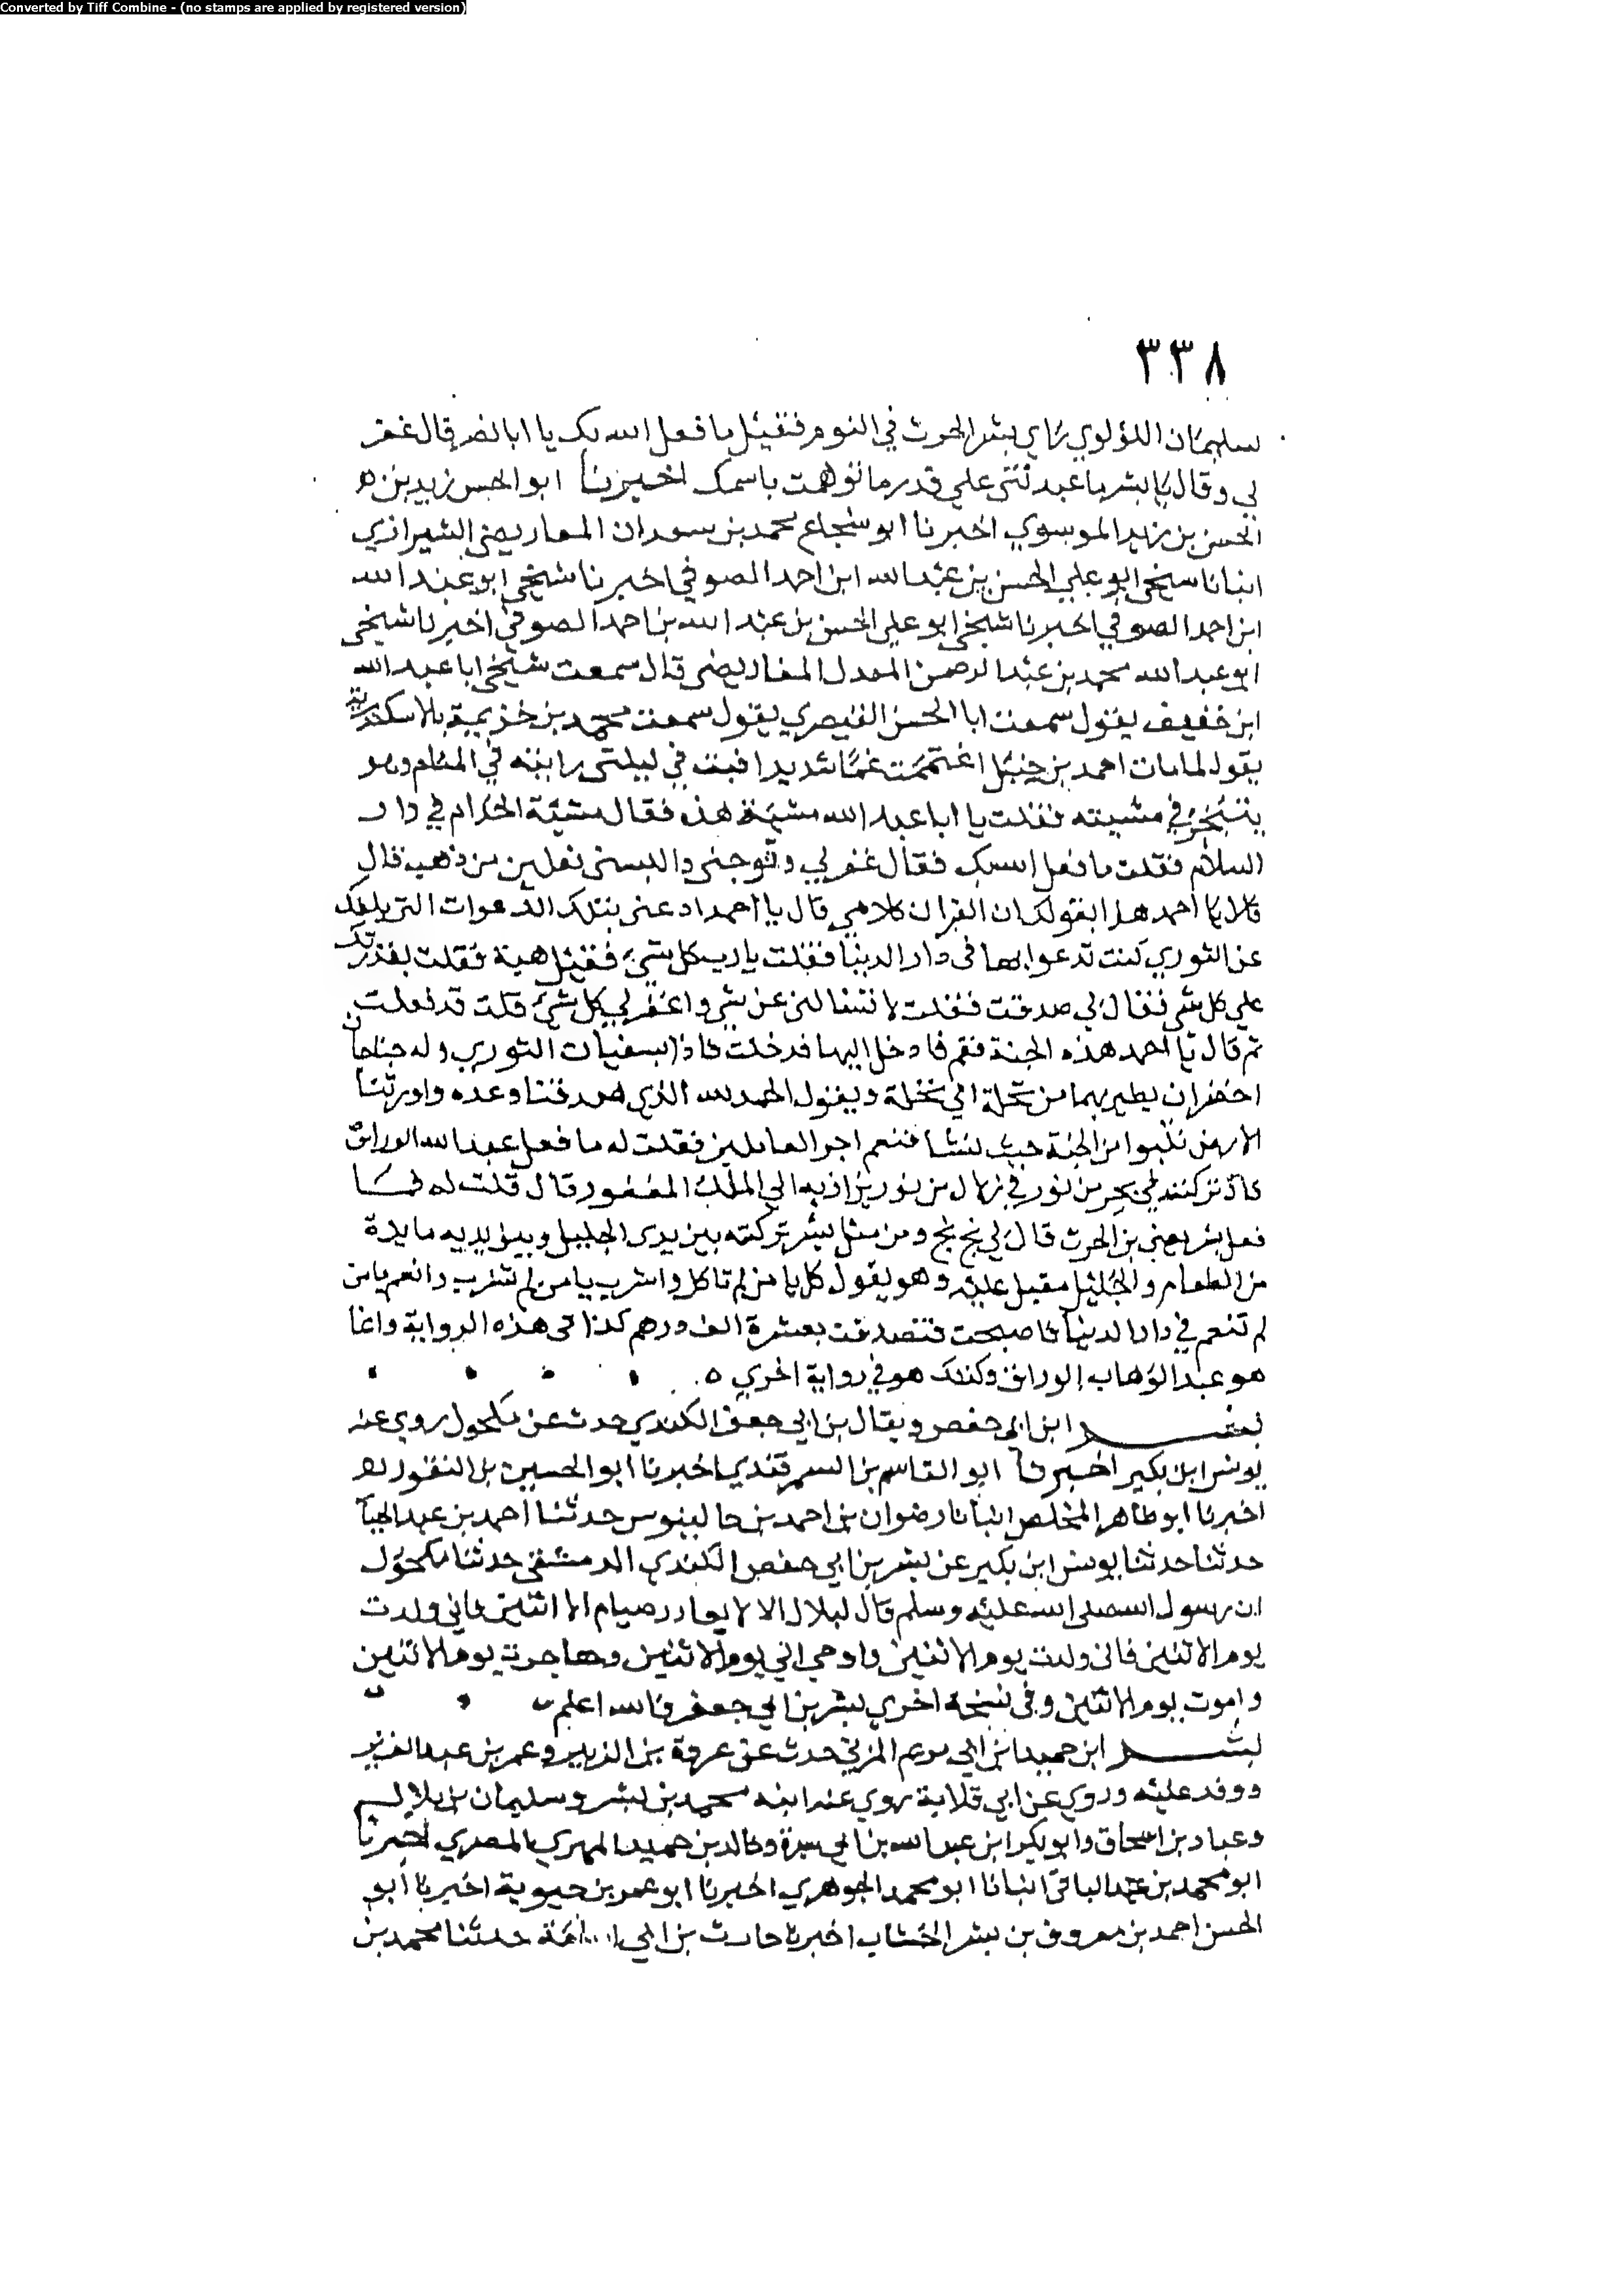 Converted by Tiff Combine - (no stamps are applied by registered version)
٣٣٨
سليمان اللؤلوي راي بشر الحرث في النوم فقيل ما فعل الله بك يا ابا نصر قال غفر
لي وقال يا بشر ما عبدتني علي قدر ما نوهت باسمك اخبرنا ابو الحسن زيد بن
الحسن بن زيد الموسوي اخبرنا ابو شجاع محمد بن سعدان المعاريضي الشيرازي
انبانا شيخي ابو علي الحسن بن عبد الله ابن احمد الصوفي اخبرنا شيخي ابو عبد الله
ابن احمد الصوفي اخبرنا شيخي ابو علي الحسن بن عبد الله بن احمد الصوفي اخبرنا شيخي
ابو عبد الله محمد بن عبد الرحمن المعدل المغاريضي قال سمعت شيخي ابا عبد الله
ابن خفيف يقول سمعت ابا الحسن القيصري يقول سمعت محمد بن خزيمة بالاسكندرية
يقول لما مات احمد بن حنبل اغتممت غما شديدا فبت في ليلتي رايته في المنام وهو
يتبختر في مشيته فقلت يا ابا عبد الله مشية هذه فقال مشية الخدام في دار
السلام فقلت ما فعل الله بك فقال غفر لي وتوجني والبسني نعلين من ذهب قال
قال يا احمد هذا بقولك ان القران كلامي قال يا احمد ادعني بتلك الدعوات التي بلغتك
عن الثوري كنت تدعوا بها في دار الدنيا فقلت يا رب كل شيء فقيل هية فقلت بقدرتك
علي كل شي فقال لي صدقت فقلت لا تسالني عن شي واغفر لي كل شيء قلت قد فعلت
ثم قال يا احمد هذه الجنة فقم فادخل اليها فدخلت فاذا بسفيان الثوري وله جناحان
اخضران يطير بهما من نخلة الي نخلة ويقول الحمد لله الذي صدقنا وعده واورثنا
الارض نتبوا من الجنة حيث نشا فنعم اجر العاملين فقلت له ما فعل عبد الله الوراق
قال تركته في بحر من نور في زلال من نور يزار به الي الملك الغفور قال قلت له فما
فعل بشر يعني بن الحرث قال لي بخ بخ ومن مثل بشر تركته بين يدي الجليل وبين يديه مايدة
من الطعام والجليل مقبل عليه وهو يقول كل يا من لم تاكل واشرب يا من لم تشرب وانعم يا من
لم تنعم في دار الدنيا فاصبحت فتصدقت بعشرة الف درهم كذا في هذه الرواية وانما
هو عبد الوهاب الوراق وكذلك هو في رواية اخري ٥
بشر ابن ابي حفص ويقال بن ابي جعفر الكندي حدث عن مكحول روي عنه
يونس ابن بكير اخبرنا ابو القاسم بن السمرقندي اخبرنا ابو الحسين بن النقور
اخبرنا ابو طاهر المخلص انبانا رضوان بن احمد بن جالينوس حدثنا احمد بن عبد الجبا
حدثنا حدثنا يونس ابن بكير عن بشر بن ابي حفص الكندي الدمشقي حدثنا مكحول
ان رسول الله صلي الله عليه وسلم قال لبلال الا لا يغادر صيام الاثنين فاني ولدت
يوم الاثنين فاني ولدت يوم الاثنين واوحي الي يوم الاثنين وهاجرت يوم الاثنين
واموت يوم الاثنين وفي نسخة اخري بشر بن ابي جعفر فالله اعلم
بشر ابن حميد ابن ابي مريم المزني حدث عن عروة بن الزبير وعمر بن عبد العزيز
ووفد عليه وروي عن ابي قلابة روي عنه ابنه محمد بن بشر وسليمان بن بلال
وعباد بن اسحاق وابو بكر ابن عبد الله بن ابي سبرة وخالد بن حميد المهري المصري اخبرنا
ابو محمد بن عبد الباقي انبانا ابو محمد الجوهري اخبرنا ابو عمر بن حيوية اخبرنا ابو
الحسن احمد بن معروف بن بشر الخشاب اخبرنا حارث بن ابي اسامة حدثنا محمد بن